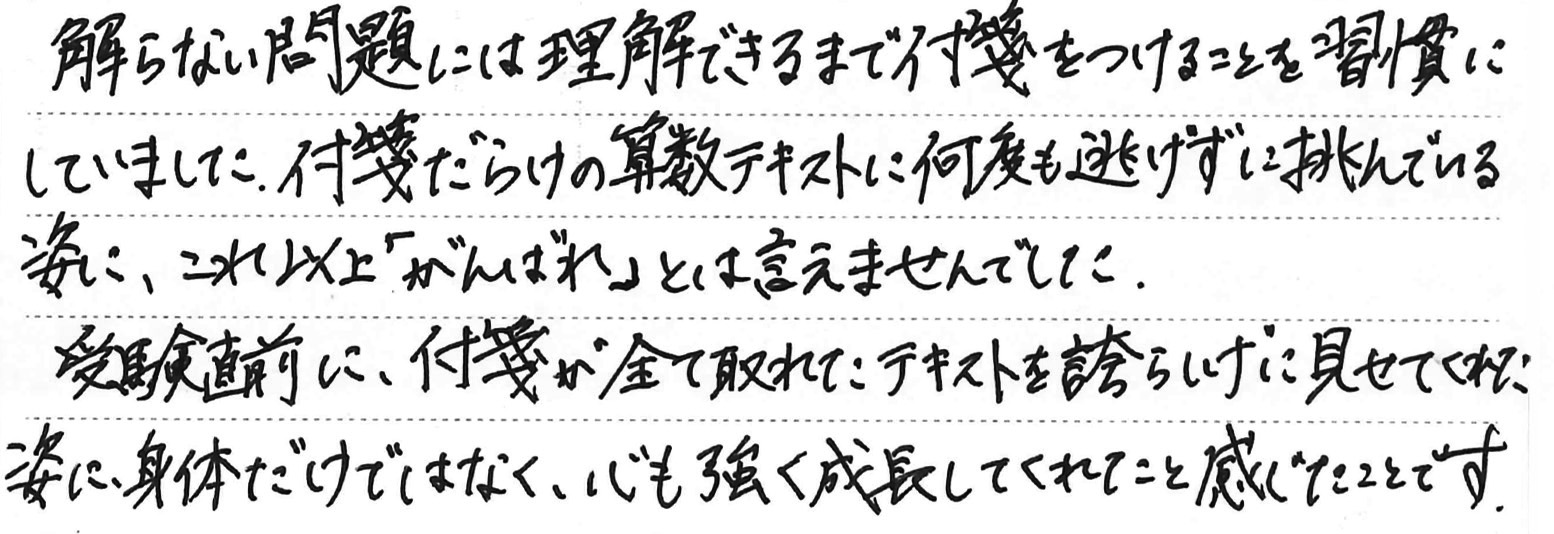 解らない問題には理解できるまで付箋をつけることを習慣に
していました.付箋だらけの算数テキストに何度も逃げずに挑んでいる
姿に、これ以上「がんばれ」とは言えませんでした.
受験直前に、付箋が全て取れたテキストを誇らしげに見せてくれた
姿に、身体だけではなく、心も強く成長してくれたこと感じたことです.